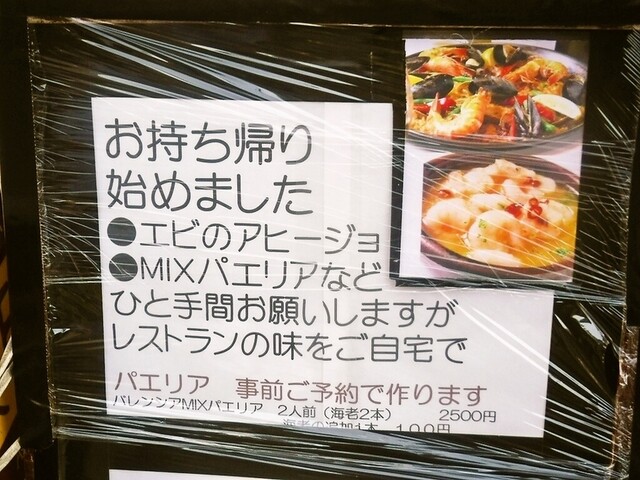 お持ち帰り
始めました
●エビのアヒージョ
●MIXパエリアなど
ひと手間お願いしますが
レストランの味をご自宅で
パエリア　事前ご予約で作ります
バレンシアMIXパエリア　2人前（海老2本）　2500円
海老の追加1本　100円